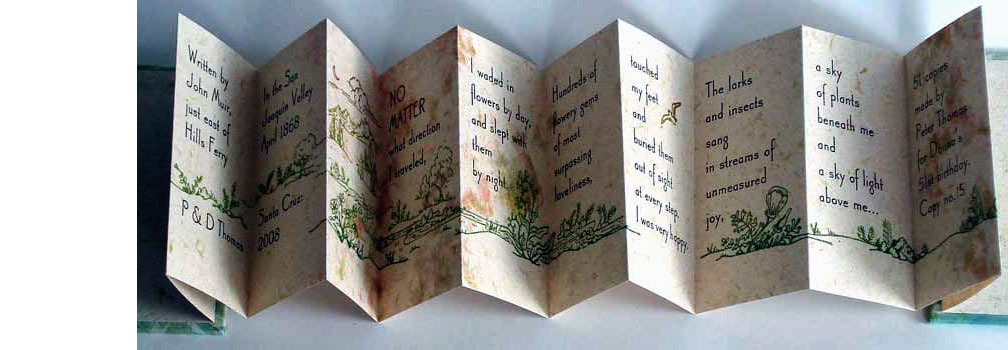 Written by
John Muir,
just east of
Hills Ferry
P & D Thomas
In the San
Joaquin Valley
April 1868
Santa Cruz:
2008
NO
MATTER
what direction
I traveled,
I waded in
flowers by day,
and slept with
them
by night.
Hundreds of
flowery gems
of most
surpassing
loveliness,
touched
my feet
and
buried them
out of sight
at every step.
I was very happy.
The larks
and insects
sang
in streams of
unmeasured
joy,
a sky
of plants
beneath me
and
a sky of light
above me...
51 copies
made by
Peter Thomas
for Donna's
51st birthday.
Copy no. 15